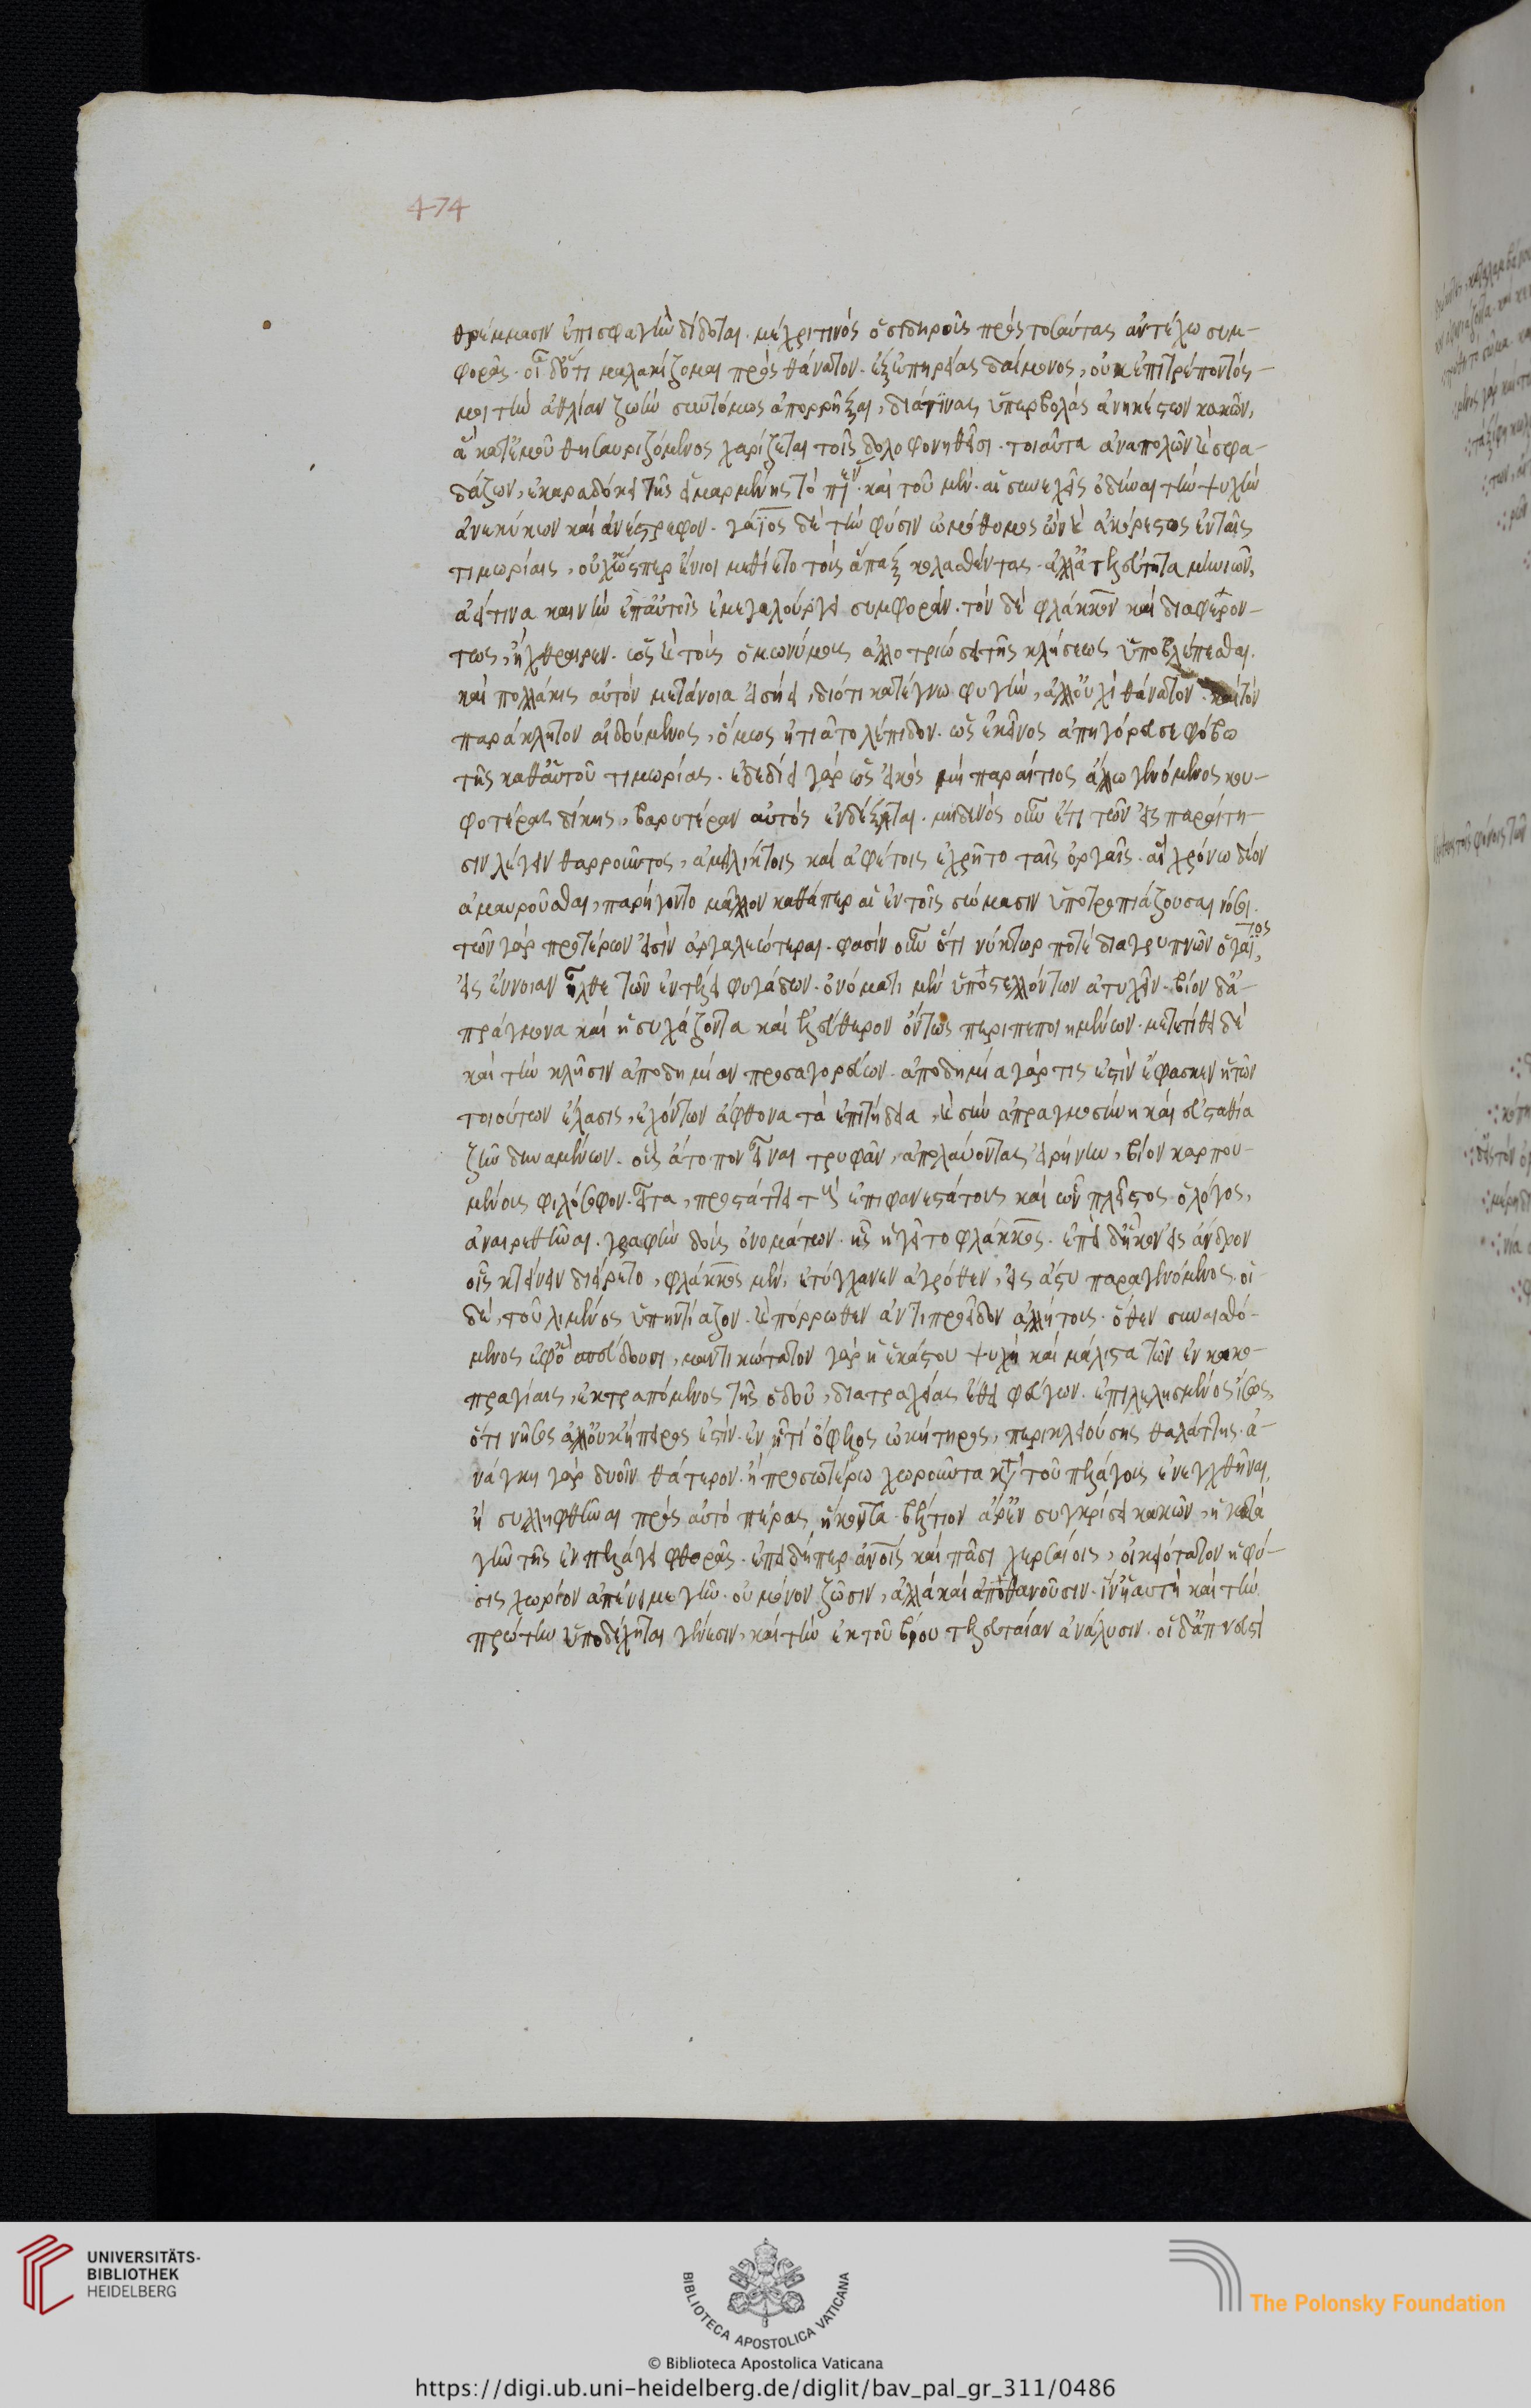 474
θρέμμασιν ἐπι σφαγὴν δίδοται. μέχριτινός ὁ σιδηροῦς πρὸς τοσαύτας ἀντέχω συμ-
φοράς. οἶδ' ὅτι μαλακίζομαι πρὸς θάνατον. ἐξ ἐπηρείας δαίμονος, οὐκ ἐπιτρέποντός
μοι τὴν ἀθλίαν ζωὴν συντόμως ἀπορρῆξαι, διάτινας ὑπερβολὰς ἀνηκέστων κακῶν,
ἃ κατ' ἐμοῦ θησαυριζόμενος χαρίζεται τοῖς δολοφονηθεῖσι. τοιαῦτα ἀναπολῶν καὶ σφα-
δάζων, ἐκαραδόκει τῆς εἱμαρμένης τὸ
ἀνεκύκων καὶ ἀνέστρεφον. γάϊος δὲ τὴν φύσιν ὠμόθυμος ὢν καὶ ἀκόρεστος ἐν ταῖς
τιμωρίαις, οὐχ ὥσπερ ἔνιοι μεθίετο τοὺς ἅπαξ κολασθέντας. ἀλλ' ἀτελεύτητα μηνιῶν,
ἀεί τινα καινὴν ἐπ' αὐτοῖς ἐμεγαλούργει συμφοράν. τὸν δὲ φλάκκον καὶ διαφερόν-
τως, ἤχθραιρεν. ὡς καὶ τοὺς ὁμωνύμους ἀλλοτριώσει τῆς κλήσεως ὑποβλέπεσθαι.
καὶ πολλάκις αὐτὸν μετάνοια εἰσῄει, διότι κατέγνω φυγὴν, ἀλλ' οὐχὶ θάνατον. καὶ τὸν
παράκλητον αἰδούμενος, ὅμως ᾐτιᾶτο λέπιδον. ὡς ἐκεῖνος ἀπηγόρευσε φόβω
τῆς καθ' αὑτοῦ τιμωρίας. ἐδεδίει γὰρ ὡς εἰκὸς μὴ παραίτιος ἄλλω γενόμενος κου-
φοτέρας δίκης, βαρυτέραν αὐτὸς ἐνδέξηται. μηδενὸς οὖν ἔτι τῶν εἰς παραίτη-
σιν λέγειν θαρροῦντος, ἀμειλίκτοις καὶ ἀφέτοις ἐχρῆτο ταῖς ὀργαῖς. αἳ χρόνω δέον
ἀμαυροῦσθαι, παρήγοντο μᾶλλον καθάπερ αἱ ἐν τοῖς σώμασιν ὑποτροπιάζουσαι νόσοι.
τῶν γὰρ προτέρων εἰσὶν ἀργαλεώτεραι. φασὶν οὖν ὅτι νύκτωρ ποτὲ διαγρυπνῶν ὁ γάϊος,
εἰς ἔννοιαν ἦλθε τῶν ἐν τέλει φυγάδων. ὀνόματι μὲν ὑποστελλόντων ἀτυχεῖν. βίον δ' ἀ-
πράγμονα καὶ ἡσυχάζοντα καὶ ἐλεύθερον ὄντως περιπεποιημένων. μετετίθει δὲ
καὶ τὴν κλῆσιν ἀποδημίαν προσαγορεύων. ἀποδημία γάρ τις ἐστὶν ἔφασκεν ἡ τῶν
τοιούτων ἔλασις, ἐχόντων ἄφθονα τὰ ἐπιτήδεια, καὶ σὺν ἀπραγμοσύνη καὶ εὐσταθία
ζῆν δυναμένων. οὓς ἄτοπον εἶναι τρυφᾶν, ἀπολαύοντας εἰρήνην, βίον καρπου-
μένους φιλόσοφον. εἶτα, προστάττει τοὺς ἐπιφανεστάτους καὶ ὧν πλεῖστος ὁ λόγος,
ἀναιρεθῆναι. γραφὴν δοὺς ὀνομάτων. ἧς ἡγεῖτο φλάκκος. ἐπεὶ δ' ἧκον εἰς ἄνδρον
οἷς κτείνειν διείρετο, φλάκκος μὲν, ἐτύγχανεν ἀγρόθεν, εἰς ἄστυ παραγενόμενος. οἱ
δὲ, τοῦ λιμένος ὑπηντίαζον. καὶ πόρρωθεν ἀντιπροεῖδον ἀλλήτοις. ὅθεν συναισθό-
μενος ἐφ' ὃ σπεύδουσι, μαντικώτατον γὰρ ἡ ἑκάστου ψυχὴ καὶ μάλιστα τῶν ἐν κακο-
πραγίαις, ἐκτραπόμενος τῆς ὁδοῦ, διὰ τραχείας ἔθει φεύγων. ἐπιλελησμένος ἴσως,
ὅτι νῆσος ἀλλ' οὐκ ἤπειρος ἐστίν. ἐν ᾗ τί ὄφελος ὠκύτητος, περικλειούσης θαλάττης. ἀ-
νάγκη γὰρ δυοῖν θάτερον. ἢ προσωτέρω χωροῦντα κατὰ τοῦ πελάγους ἐνεχθῆναι,
ἢ συλληφθῆναι πρὸς αὐτὸ πέρας ἥκοντα. βέλτιον ἄρ' ἐν συγκρίσει κακῶν, ἡ κατὰ
γῆν τῆς ἐν πελάγει φθορᾶς. ἐπειδήπερ ἀνοις καὶ πᾶσι χερσαίοις, οἰκειότατον ἡ φύ-
σις χωρίον ἀπένειμε γῆν. οὐ μόνον ζῶσιν, ἀλλὰ καὶ ἀποθανοῦσιν. ἵν' ἡ αὐτὴ καὶ τὴν
πρώτην ὑποδέχηται γένεσιν, καὶ τὴν ἐκ τοῦ βίου τελευταίαν ἀνάλυσιν. οἱ δ' ἀπνευστὶ
UNIVERSITÄTS-
BIBLIOTHEK
HEIDELBERG
BIBLIOTECA APOSTOLICA VATICANA
The Polonsky Foundation
© Biblioteca Apostolica Vaticana
https://digi.ub.uni-heidelberg.de/diglit/bav_pal_gr_311/0486